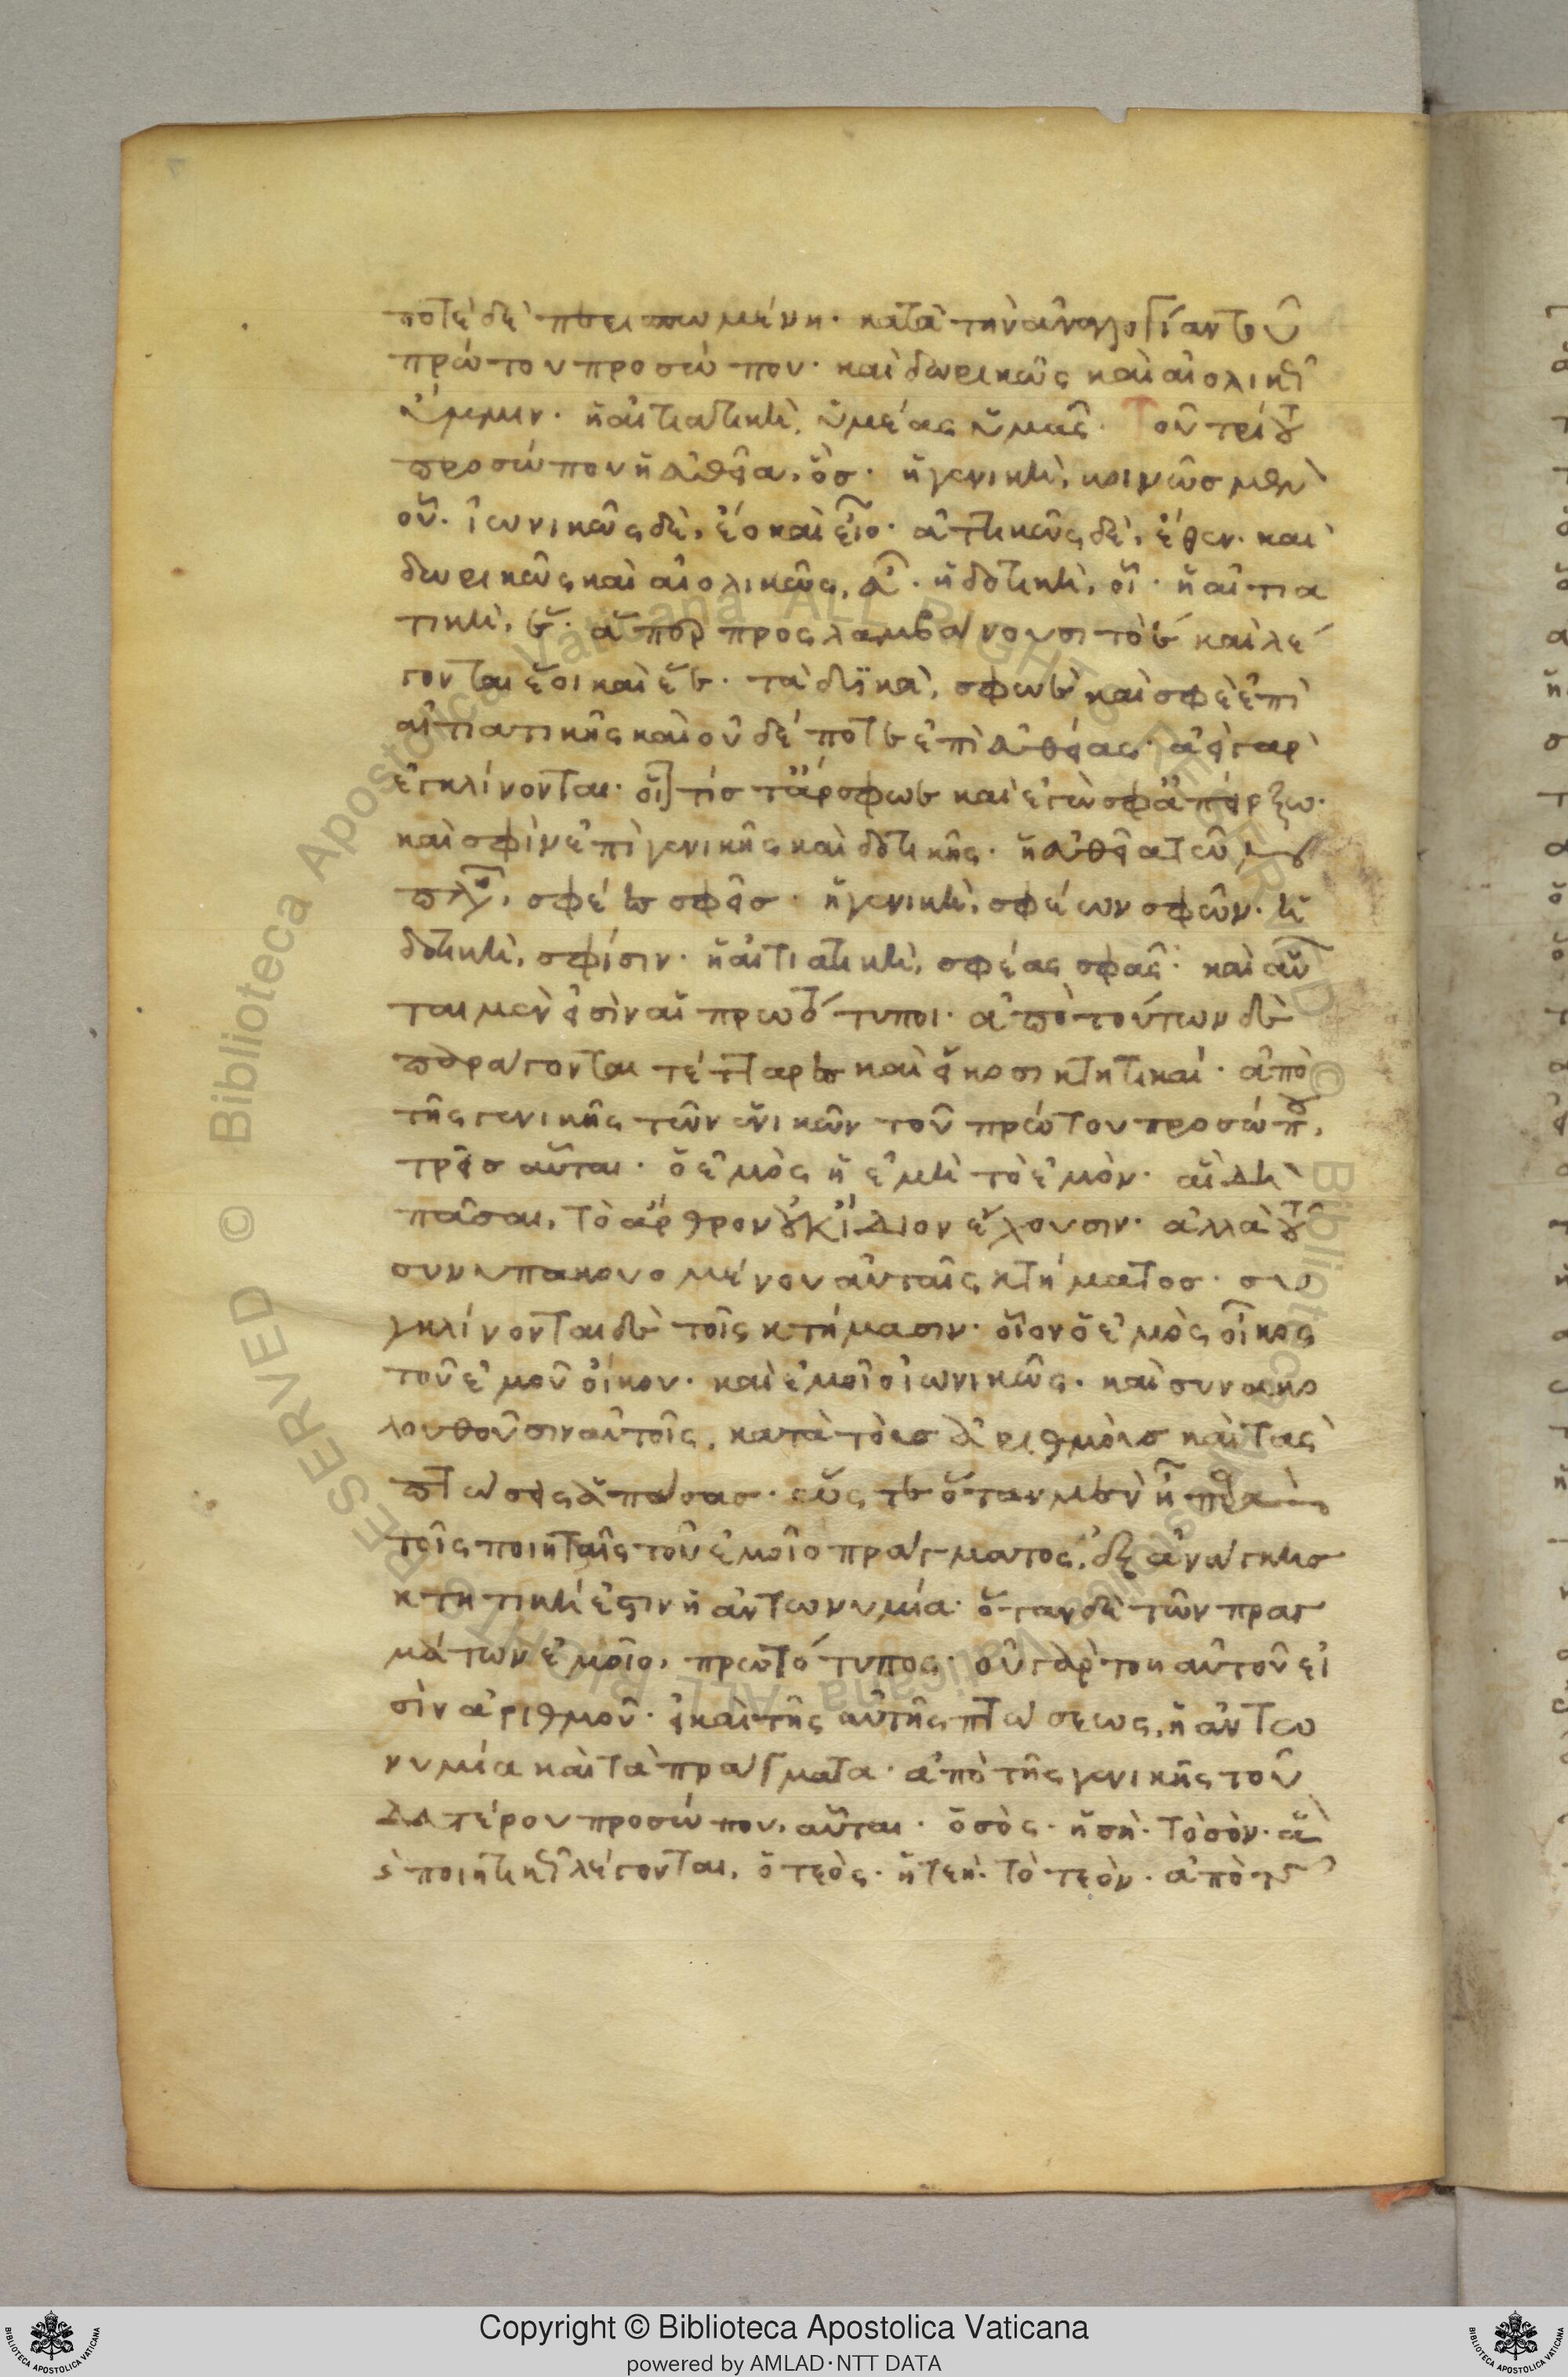 ποτὲ δὲ περισπωμένη· κατὰ τὴν ἀναλογίαν τοῦ
πρώτου προσώπου· καὶ δωρικῶς καὶ αἰολικῶς
ὔμμιν· ἡ αἰτιατικὴ, ὑμέας ὑμᾶς· Τοῦ τρίτου
προσώπου ἡ εὐθεῖα, ὅσ· ἡ γενικὴ, κοινῶσ μὲν
οὗ· ἰωνικῶς δὲ, ἕο καὶ εἷο· ἀττικῶς δὲ, ἕθεν· καὶ
δωρικῶς καὶ αἰολικῶς, εὗ· ἡ δοτικὴ, οἷ· ἡ αἰτια
τικὴ, ἕ· ἅπερ προςλαμβάνουσι τὸ ε καὶ λέ
γονται ἑοῖ καὶ ἑέ· τὰ δυϊκὰ, σφωὲ καὶ σφὲ ἐπὶ
αἰτιατικῆς καὶ οὐδέποτε ἐπὶ εὐθείας· ἀεὶ γὰρ
ἐγκλίνονται· οἷον τίσ τάρ σφωε καὶ
καὶ σφὶν ἐπὶ γενικῆς καὶ δοτικῆς· ἡ εὐθεῖα τῶν
πλη, σφέες σφεῖσ· ἡ γενικὴ, σφέων σφῶν· ἡ
δοτικὴ, σφίσιν· ἡ αἰτιατικὴ, σφέας σφᾶς· καὶ αὗ
ται μὲν εἰσὶν αἱ πρωτότυποι· ἀπὸ τούτων δὲ
παράγονται τέτταρες καὶ εἴκοσι κτητικαί· ἀπὸ
τῆς γενικῆς τῶν ἑνικῶν τοῦ πρώτου προσώπου,
τρεῖσ αὗται· ὁ ἐμὸς ἡ ἐμὴ τὸ ἐμὸν· αἳ δὴ
πᾶσαι, τὸ ἄρθρον οὐκ ἴδιον ἔχουσιν· ἀλλὰ τοῦ
συνυπακουομένου αὐταῖς κτήματοσ· συ
γκλίνονται δὲ τοῖς κτήμασιν· οἷον ὁ ἐμὸς οἶκος
τοῦ ἐμοῦ οἴκου· καὶ ἐμοῖο ἰωνικῶς· καὶ συνακο
λουθοῦσιν αὐτοῖς, κατὰ τοὺσ ἀριθμοὺσ καὶ τὰς
πτώσεις ἁπάσασ· ὥς τε ὅταν μὲν ᾖ παρὰ
τοῖς ποιηταῖς τοῦ ἐμοῖο πράγματος, ἐξ ἀνάγκησ
κτητική ἐστιν ἡ ἀντωνυμία· ὅταν δὲ τῶν πραγ
μάτων ἐμοῖο, πρωτότυπος· οὐ γὰρ τοῦ αὐτοῦ εἰ
σὶν ἀριθμοῦ· εἰ καὶ τῆς αὐτῆς πτώσεως, ἡ ἀντω
νυμία καὶ τὰ πράγματα· ἀπὸ τῆς γενικῆς τοῦ
δευτέρου προσώπου, αὗται· ὁ σὸς· ἡ σὴ· τὸ σὸν· ἃ
καὶ ποιητικῶς λέγονται, ὁ τεὸς· ἡ τεὴ· τὸ τεὸν· ἀπὸ τῆς
Copyright © Biblioteca Apostolica Vaticana
powered by AMLAD·NTT DATA